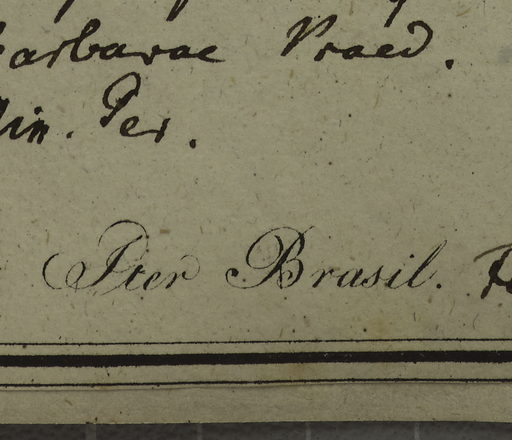 arbarae Praed.
Min. Ger.
Iter Brasil.